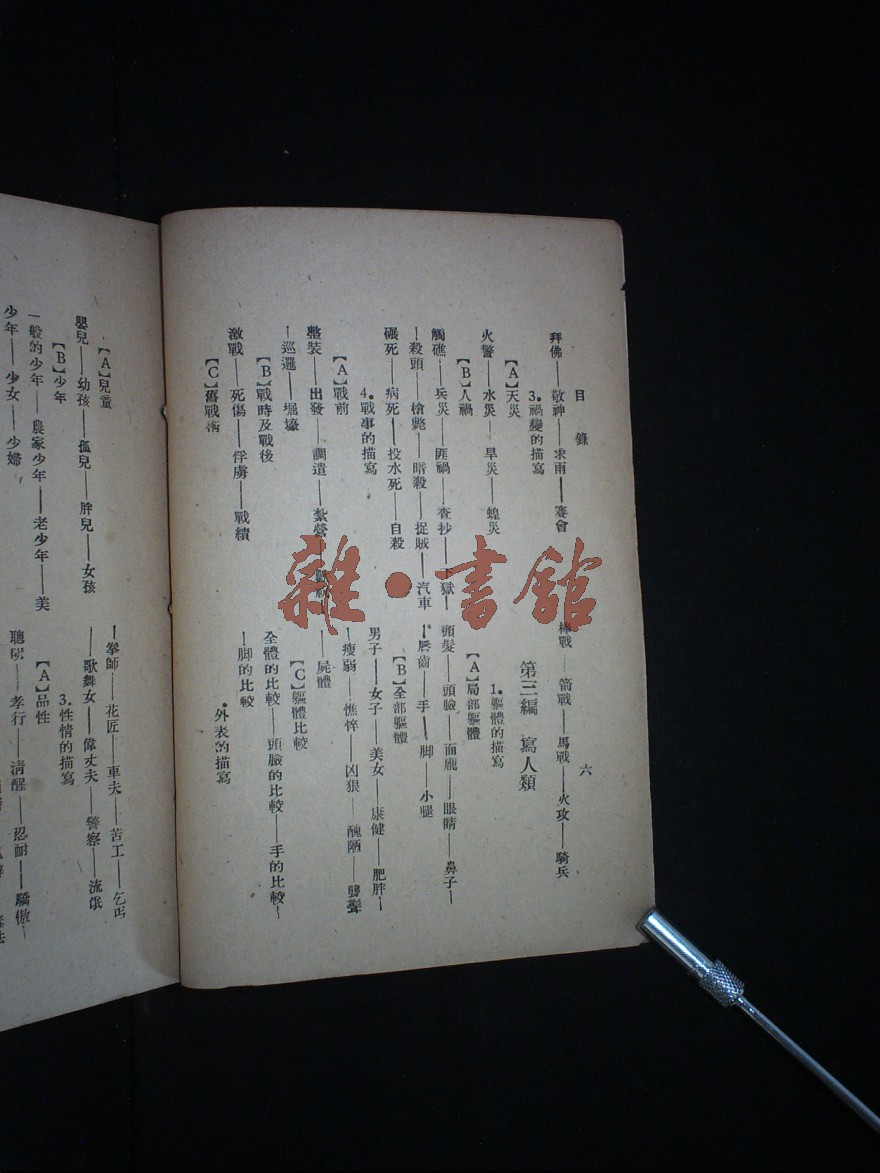 目錄
六
拜佛——敬神——求雨——賽會
3.禍變的描寫
【A】天災
火警——水災——旱災——蝗災
【B】人禍
觸礁——兵災——匪禍——查抄——獄—
—殺頭——槍斃——暗殺——捉賊——汽車
碾死——病死——投水死——自殺
4.戰事的描寫
【A】戰前
整裝——出發——調遣——紮營
—巡邏——堀壕
【B】戰時及戰後
激戰——死傷——俘虜——戰績
【C】舊戰術
棒戰——箭戰——馬戰——火攻——騎兵
第三編 寫人類
1.軀體的描寫
【A】局部軀體
頭髮——頭臉——面龐——眼睛——鼻子—
—唇齒——手——脚——小腿
【B】全部軀體
男子——女子——美女——康健——肥胖—
—瘦弱——憔悴——凶狠——醜陋——聾聾
——屍體
【C】軀體比較
全體的比較——頭臉的比較——手的比較—
—脚的比較
.外表的描寫
【A】兒童
嬰兒——幼孩——孤兒——胖兒——女孩
【B】少年
一般的少年——農家少年——老少年——美
少年——少女——少婦
—拳師——花匠——車夫——苦工——乞丐
——歌舞女——偉丈夫——警察——流氓
3.性情的描寫
【A】品性
聰明——孝行——清醒——忍耐——驕傲—
雜·書館